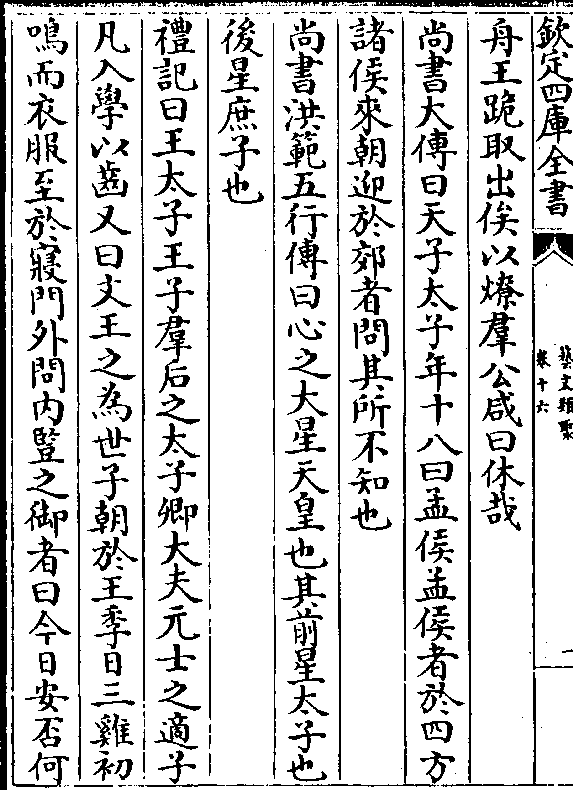 欽定四庫全書
藝文類聚
卷十六
舟王跪取出俟以燎羣公咸曰休哉
尚書大傳曰天子太子年十八曰孟侯孟侯者於四方
諸侯來朝迎於郊者問其所不知也
尚書洪範五行傳曰心之大星天皇也其前星太子也
後星庶子也
禮記曰王太子王子羣后之太子卿大夫元士之適子
凡入學以齒又曰文王之為世子朝於王季日三雞初
鳴而衣服至於寢門外問內豎之御者曰今日安否何